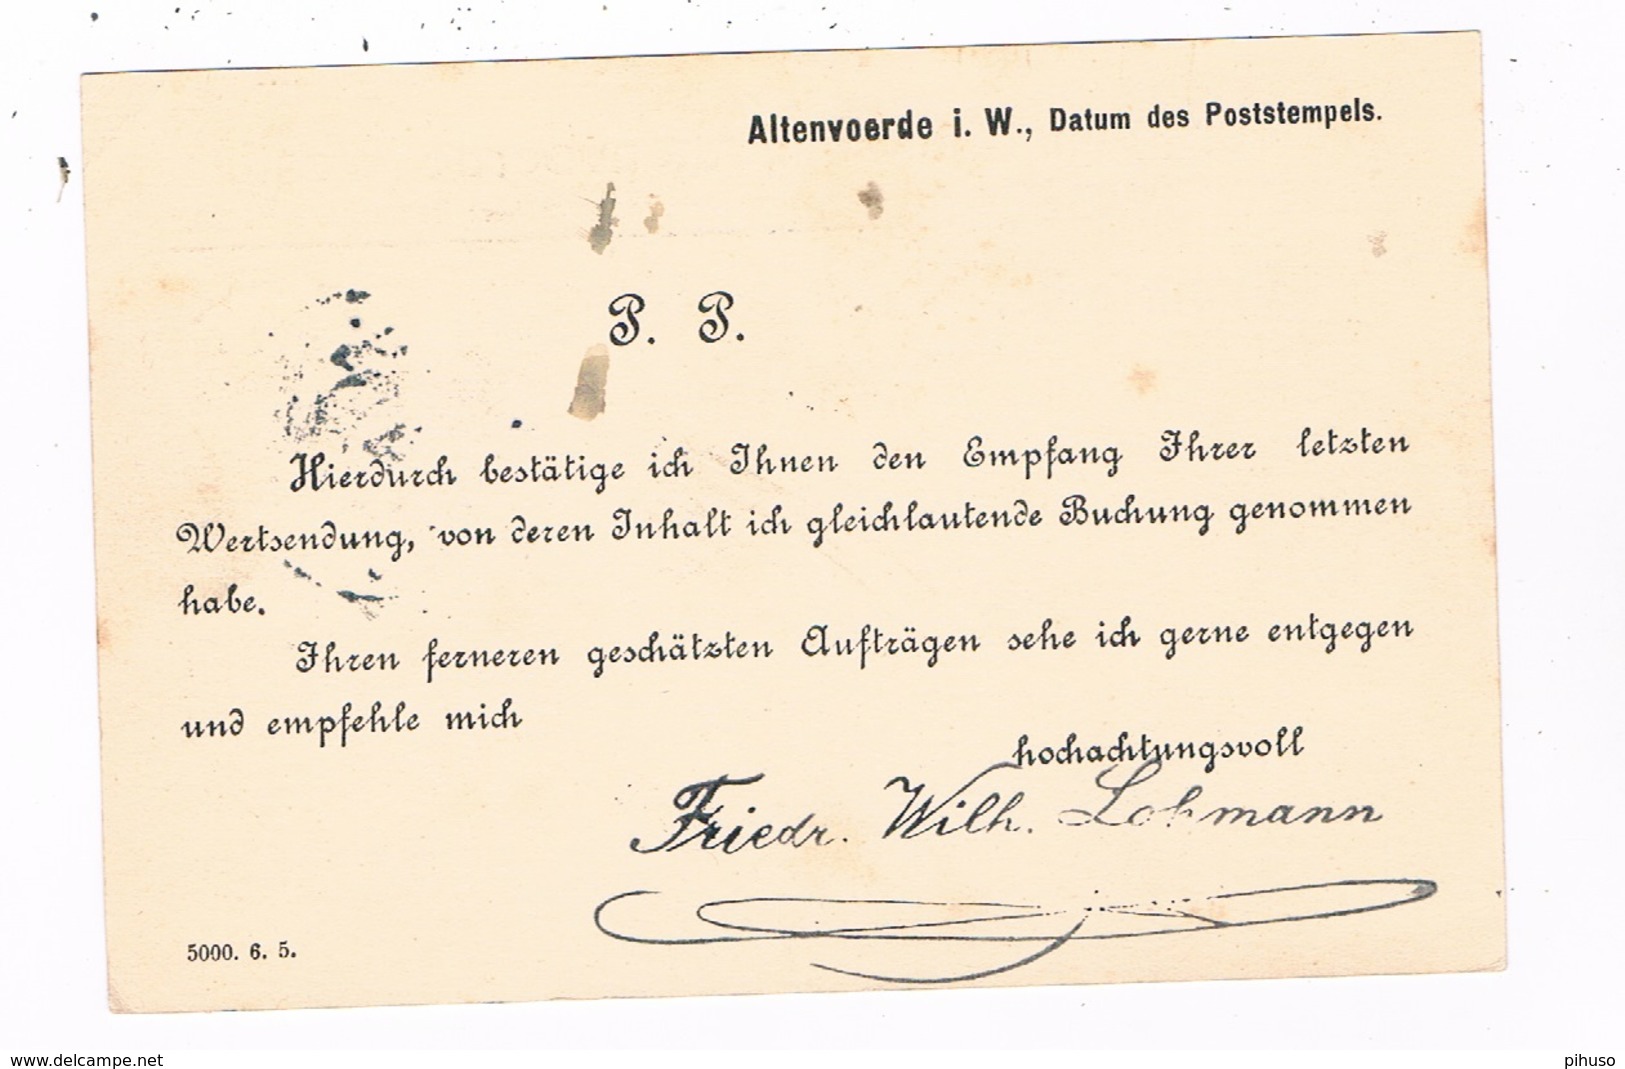 Altenvoerde i. W., Datum des Poststempels.
P. P.
Hierdurch bestätige ich Ihnen den Empfang Ihrer letzten
Wertsendung, von deren Inhalt ich gleichlautende Buchung genommen
habe.
Ihren ferneren geschätzten Aufträgen sehe ich gerne entgegen
und empfehle mich
hochachtungsvoll
Friedr. Wilh. Lohmann
5000. 6. 5.
www.delcampe.net
pihuso